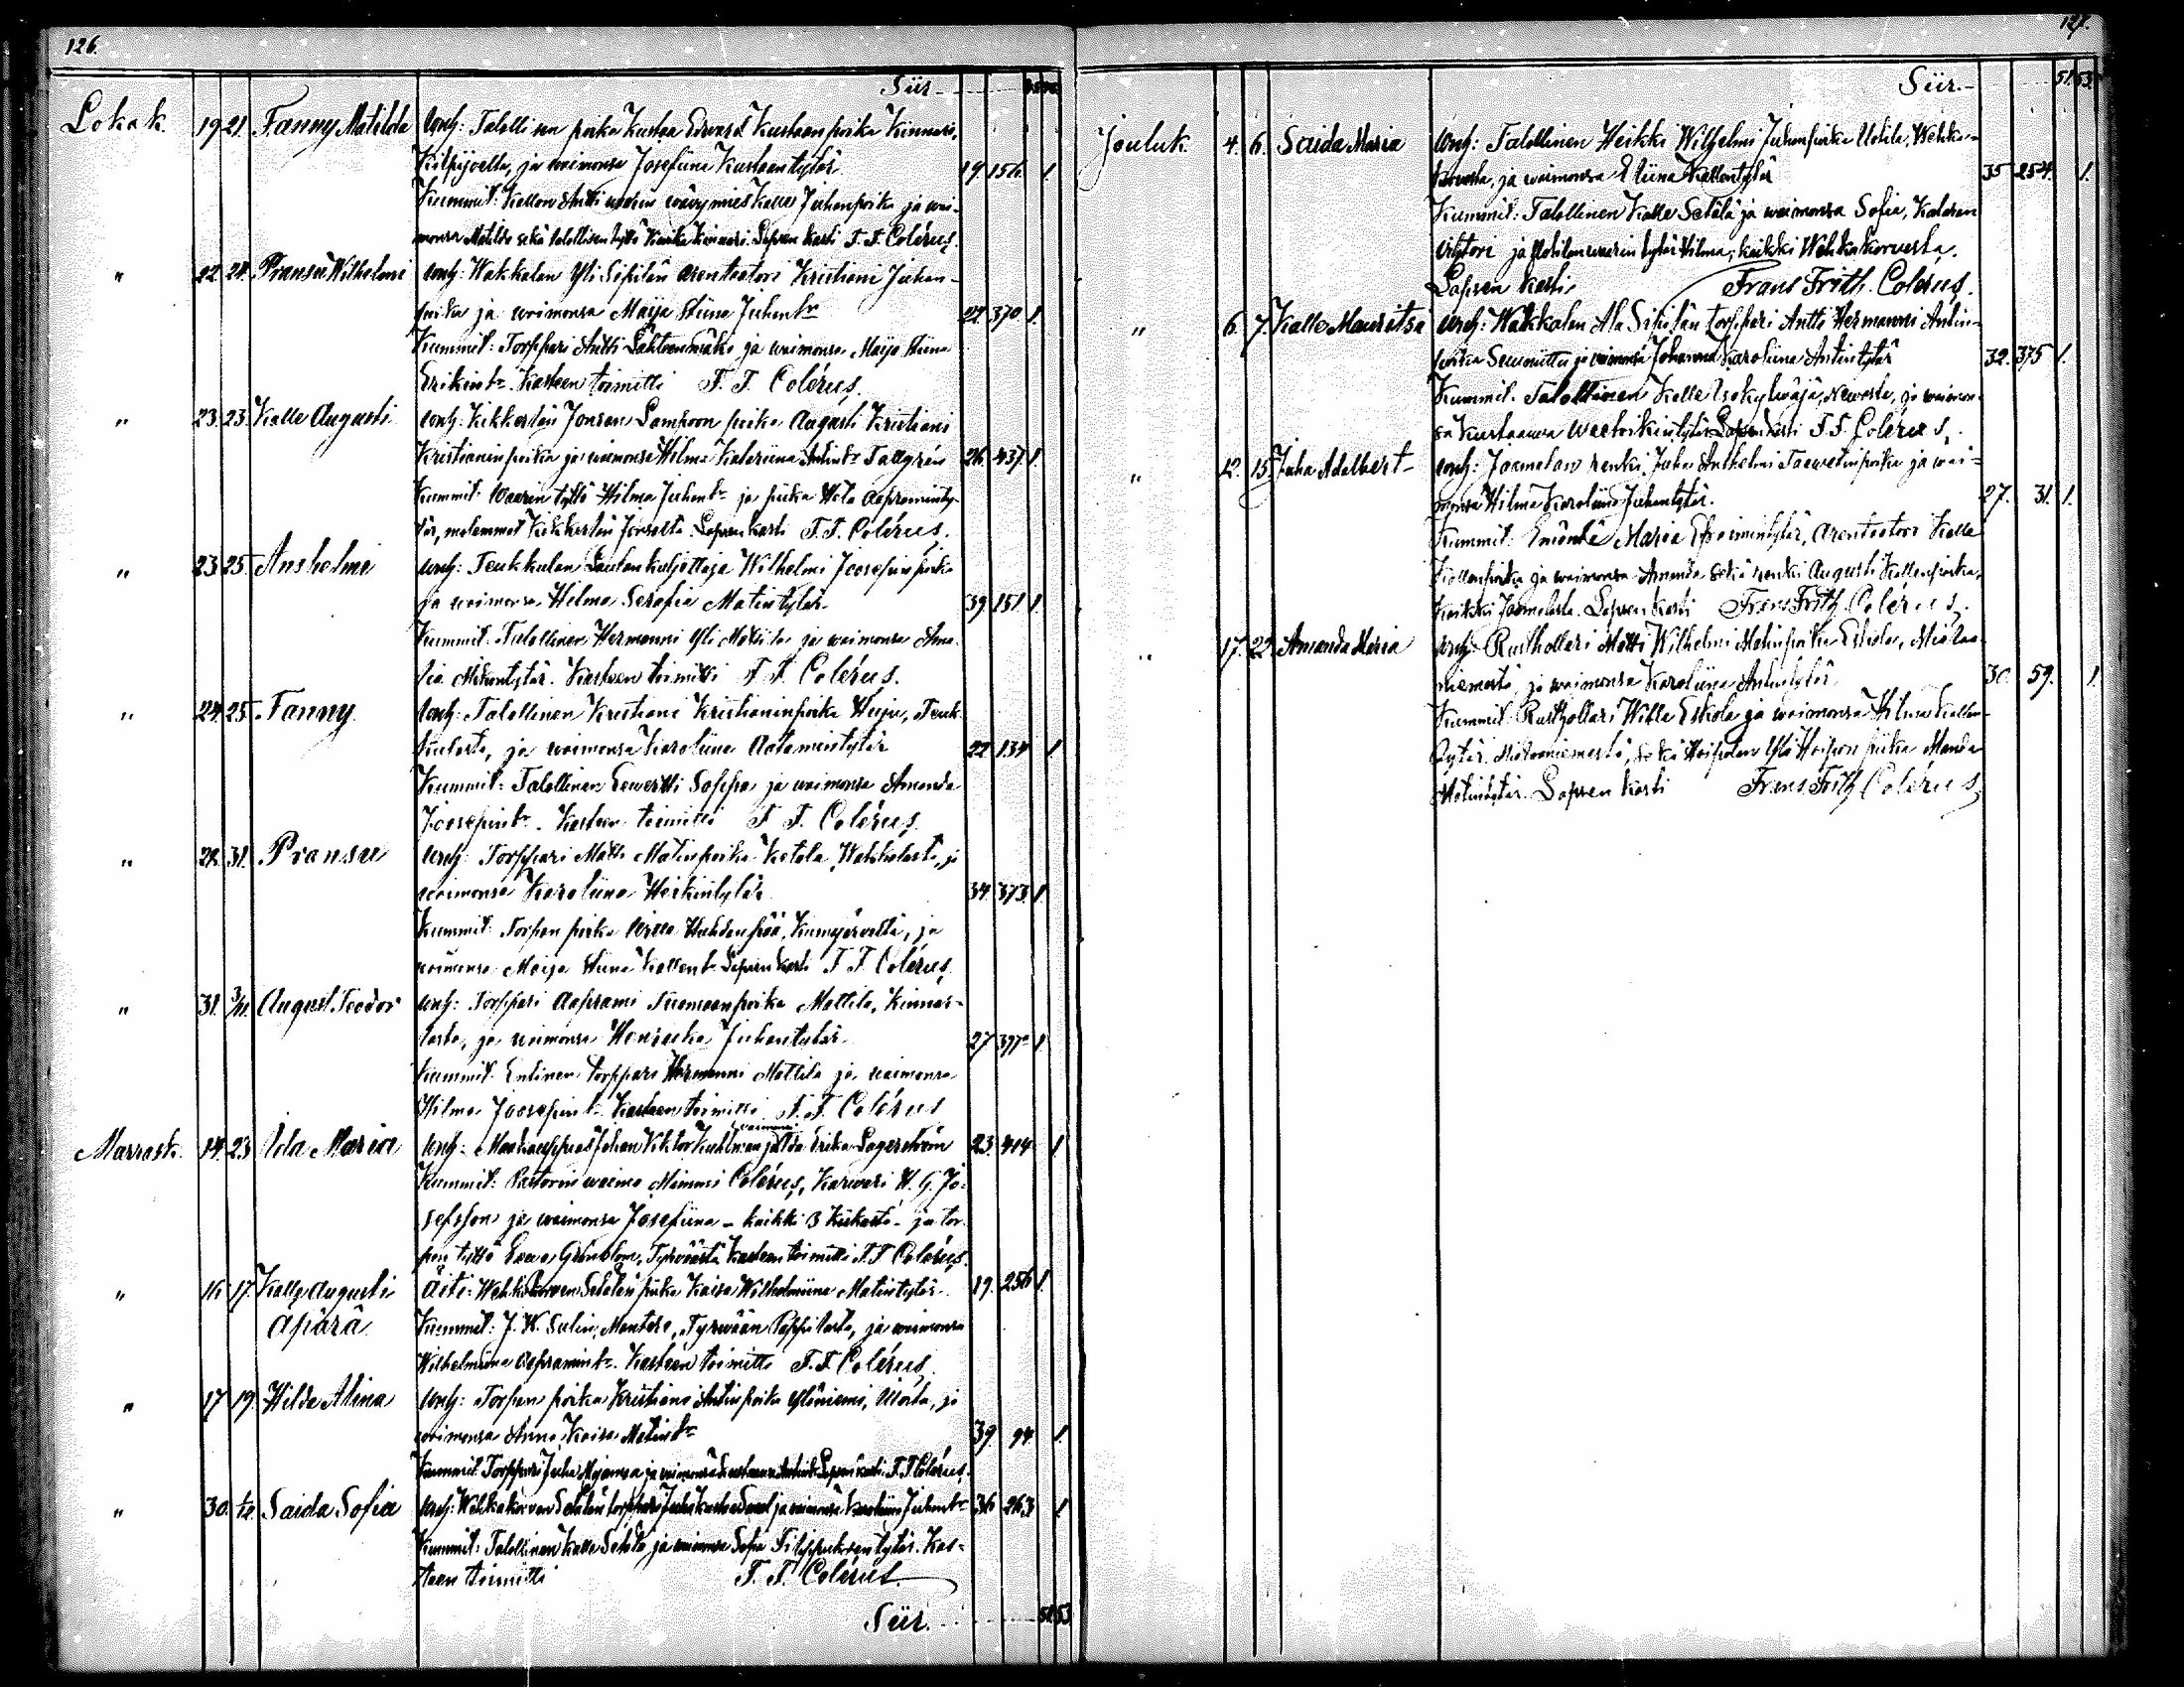 126.
Siir
Lokak. 19. 21. Fanny Matilda Wanh: Talollisen poika Kustaa Edvard Kustaanpoika Kinnari,
Kilpijoelta, ja waimonsa Josefiina Kustaantytär. 19. 156. 1.
Kummit: Kallon Antti uuden wäwymies Kalle Juhanpoika ja wai-
monsa Matilda sekä talollisen tyttö Kinnari. Lapsen kasti F. F. Colérus.
" 22. 24. Fransu Wilhelmi Wanh: Wakkalan Yli Sipilän arentaatori Kristiani Juhan-
poika ja waimonsa Maija Stiina Juhantr 24. 370. 1.
Kummit: Torppari Antti Lähteenmäki ja waimonsa Maija Stiina
Erikintr. Kasteen toimitti F. F. Colérus.
" 23. 23. Kalle Augusti Wanh: Kikkerlän Jonsen Lampoon poika Augusti Kristiani
Kristianinpoika ja waimonsa Hilma Katariina Antintr Tallgrén 26. 437. 1.
Kummit: Waarin tyttö Hilma Juhantr ja piika Hilda Aapraminty-
tär, molemmat Kikkerlän Jonsesta. Lapsen kasti F. F. Colérus.
" 23. 25. Anshelmi Wanh: Teukkulan Lautankuljettaja Wilhelmi Joosefinpoika
ja waimonsa Hilma Serafia Matintytär 39. 151. 1.
Kummit: Talollinen Hermanni Yli Mattila ja waimonsa Ama-
lia Mikontytär. Kasteen toimitti F. F. Colérus.
" 24. 25. Fanny Wanh: Talollinen Kristiani Kristianinpoika Huju, Teuk-
kulasta, ja waimonsa Karoliina Aatamintytär 22. 134. 1.
Kummit: Talollinen Eewertti Soppa ja waimonsa Amanda
Joosepintr. Kasteen toimitti F. F. Colérus.
" 29. 31. Fransu Wanh: Torppari Matti Matinpoika Ketola Wakkalasta, ja
waimonsa Karoliina Heikintytär 34. 373. 1.
Kummit: Torpan poika Huhdanpää, Kinnijärveltä, ja
waimonsa Maija Stiina Kallentr. Lapsen kasti F. F. Colérus.
" 31. 3/11. August Teodor Wanh: Torppari Aaprami Tuomaanpoika Mattila, Kinnas-
lasta, ja waimonsa Henriika Juhantytär. 27. 397. 1.
Kummit: Entinen torppari Hermanni Mattila ja waimonsa
Hilma Joosepintr. Kasteen toimitti F. F. Colérus
Marrask. 14. 23. Ida Maria Wanh: Maakauppias Johan Viktor Kuhlman ja waimonsa Ida Erika Lagerström 23. 414. 1.
Kummit: Pastorin waimo Mimmi Colérus, Karwari K. G. Jo-
sefsson ja waimonsa Josefiina – kaikki 3 Kiikasta – ja tor-
pan tyttö Eewa Grönblom, Tyrwäästä. Kasteen toimitti F. F. Colérus.
" 16. 17. Kalle Augusti Äiti: Wehkakorwen Setälän piika Kaisa Wilhelmiina Matintytär. 19. 256. 1.
Äpärä Kummit: J. W. Sulin, Mantere, Tyrwään Pappilasta, ja waimonsa
Wilhelmiina Aapramintr. Kasteen toimitti F. F. Colérus.
" 17. 19. Hilda Alina Wanh: Torpan poika Kristiani Antinpoika Yliniemi, Uloita, ja
waimonsa Anna Kaisa Matintr 39. 94. 1.
Kummit: Torppari Juha Myömaa ja waimonsa Kustaawa Antintr. Lapsen kasti F. F. Colérus.
" 30. 1/12. Saida Sofia Wanh: Wehkakorwen Setälän torppari Juha Kustaa ja waimonsa Karoliina Juhantr 36. 263. 1.
Kummit: Talollinen Kalle Setälä ja waimonsa Sofia Filippuksentytär. Kas-
teen toimitti F. F. Colérus.
Siir. 51. 53.
127.
Siir. 51. 53.
Jouluk. 4. 6. Saida Maria Wanh: Talollinen Heikki Wilhelmi Juhanpoika Uotila, Wehka-
korwesta, ja waimonsa Eliina Kallentytär 35. 254. 1.
Kummit: Talollinen Kalle Setälä ja waimonsa Sofia, Kaloran
Viktori ja Uotilan waarin tytär Hilma, kaikki Wehkakorwesta.
Lapsen kasti Frans Frith. Colérus.
" 6. 7. Kalle Mauritsa Wanh: Wakkalan Ala Sipilän torppari Antti Hermanni Antin-
poika Suoniittu ja waimonsa Johanna Karoliina Antintytär 32. 375. 1.
Kummit: Talollinen Kalle Isokylwäjä, Newosta, ja waimon-
sa Kustaawa Lapsen kasti F. F. Colérus.
" 12. 15. Juha Adalbert Wanh: Jaamalan renki Juha Anthelmi Taawetinpoika ja wai-
monsa Hilma Karoliina Juhantytär. 27. 31. 1.
Kummit: Emäntä Maria Efraimintytär, arentaatori Kalle
Kallenpoika ja waimonsa Amanda sekä renki Augusti Kallenpoika,
kaikki Jaamalasta. Lapsen kasti Frans Frith. Colérus.
" 17. 22. Amanda Maria Wanh: Rusthollari Matti Wilhelmi Matinpoika Eskola, Miätaa-
niemestä, ja waimonsa Karoliina Antintytär 30. 59. 1.
Kummit: Rusthollari Wille Eskola ja waimonsa Hilma Kallen-
tytär Miätaaniemestä, sekä Hoipolan Yli Hoipon piika Manda
Matintytär. Lapsen kasti Frans Frith Colérus